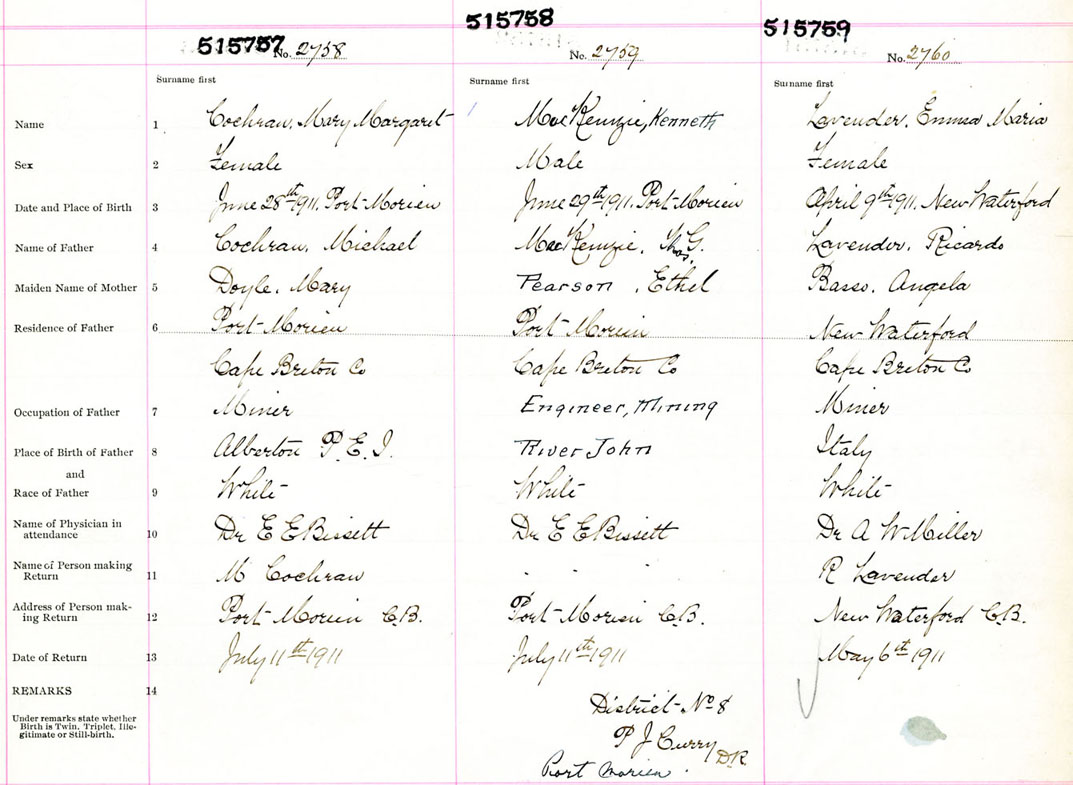 515757 515758 515759
No. 2758 No. 2759 No. 2760
Surname first Surname first Surname first
Name 1 Cochran, Mary Margaret MacKenzie, Kenneth Lavender, Emma Maria
Sex 2 Female Male Female
Date and Place of Birth 3 June 28th 1911. Port Morien June 29th 1911. Port Morien April 9th 1911. New Waterford
Name of Father 4 Cochran, Michael MacKenzie, Thos. G. Lavender, Ricardo
Maiden Name of Mother 5 Doyle, Mary Pearson, Ethel Basso, Angela
Residence of Father 6 Port Morien Port Morien New Waterford
Cape Breton Co Cape Breton Co Cape Breton Co
Occupation of Father 7 Miner Engineer, Mining Miner
Place of Birth of Father 8 Alberton P.E.I. River John Italy
and
Race of Father 9 White White White
Name of Physician in
attendance 10 Dr E E Bissett Dr E E Bissett Dr A W Miller
Name of Person making
Return 11 M Cochran " " " R Lavender
Address of Person mak-
ing Return 12 Port Morien C.B. Port Morien C.B. New Waterford C.B.
Date of Return 13 July 11th 1911 July 11th 1911 May 6th 1911
REMARKS 14
Under remarks state whether
Birth is Twin, Triplet, Ille-
gitimate or Still-birth.
District No 8
P J Curry D.R.
Port Morien.